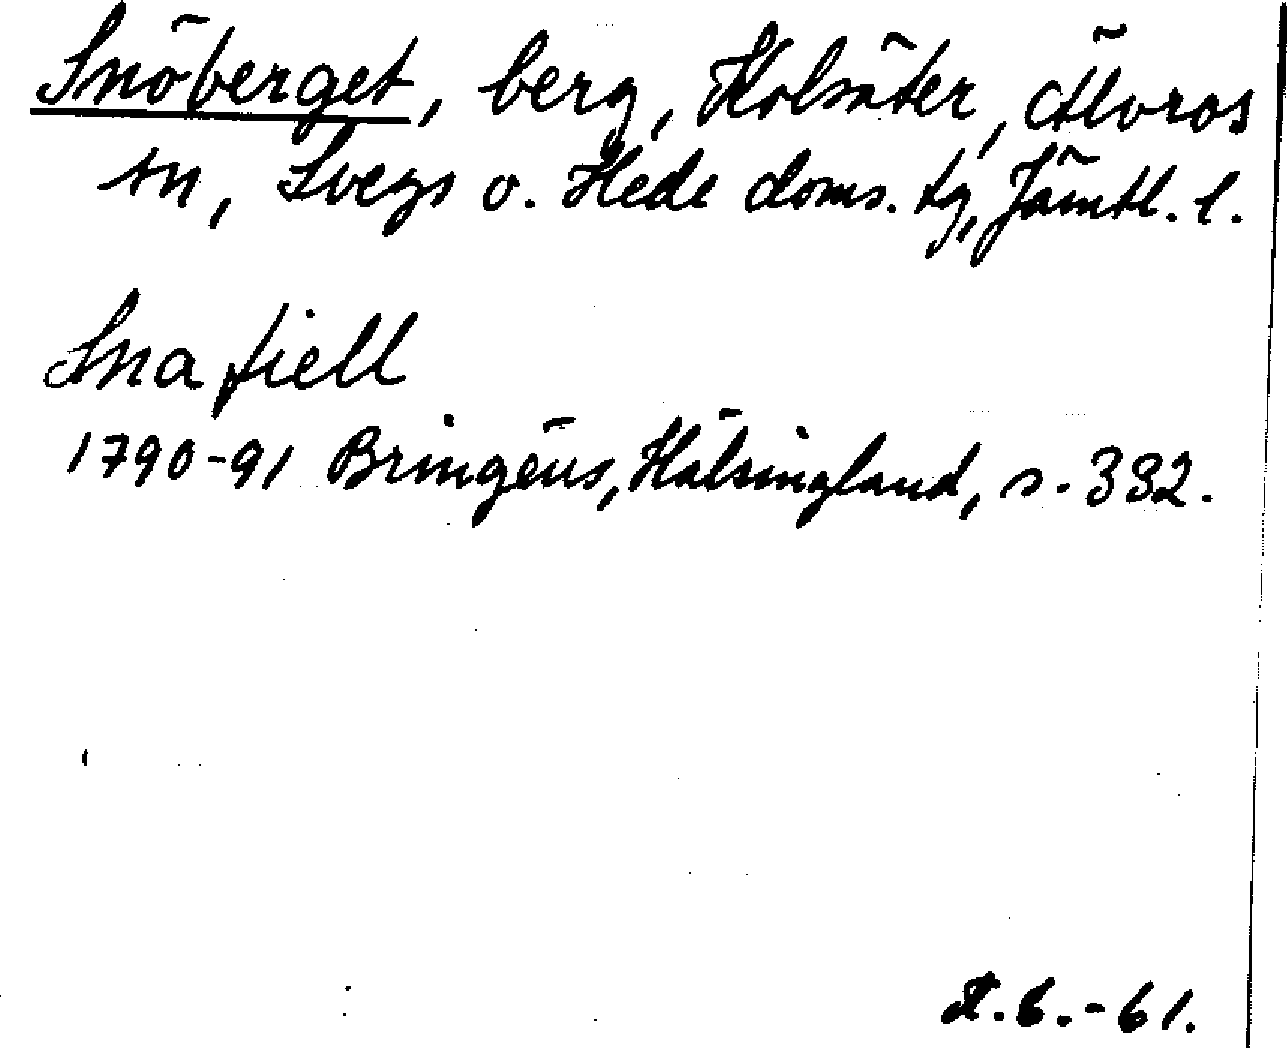 Snöberget, berg, Kolsäter, Älvros
sn, Svegs o. Hede doms. tg, Jämtl. l.
Sna fiell
1790-91 Bringéus, Hälsingland, s. 332.
A.B.-61.